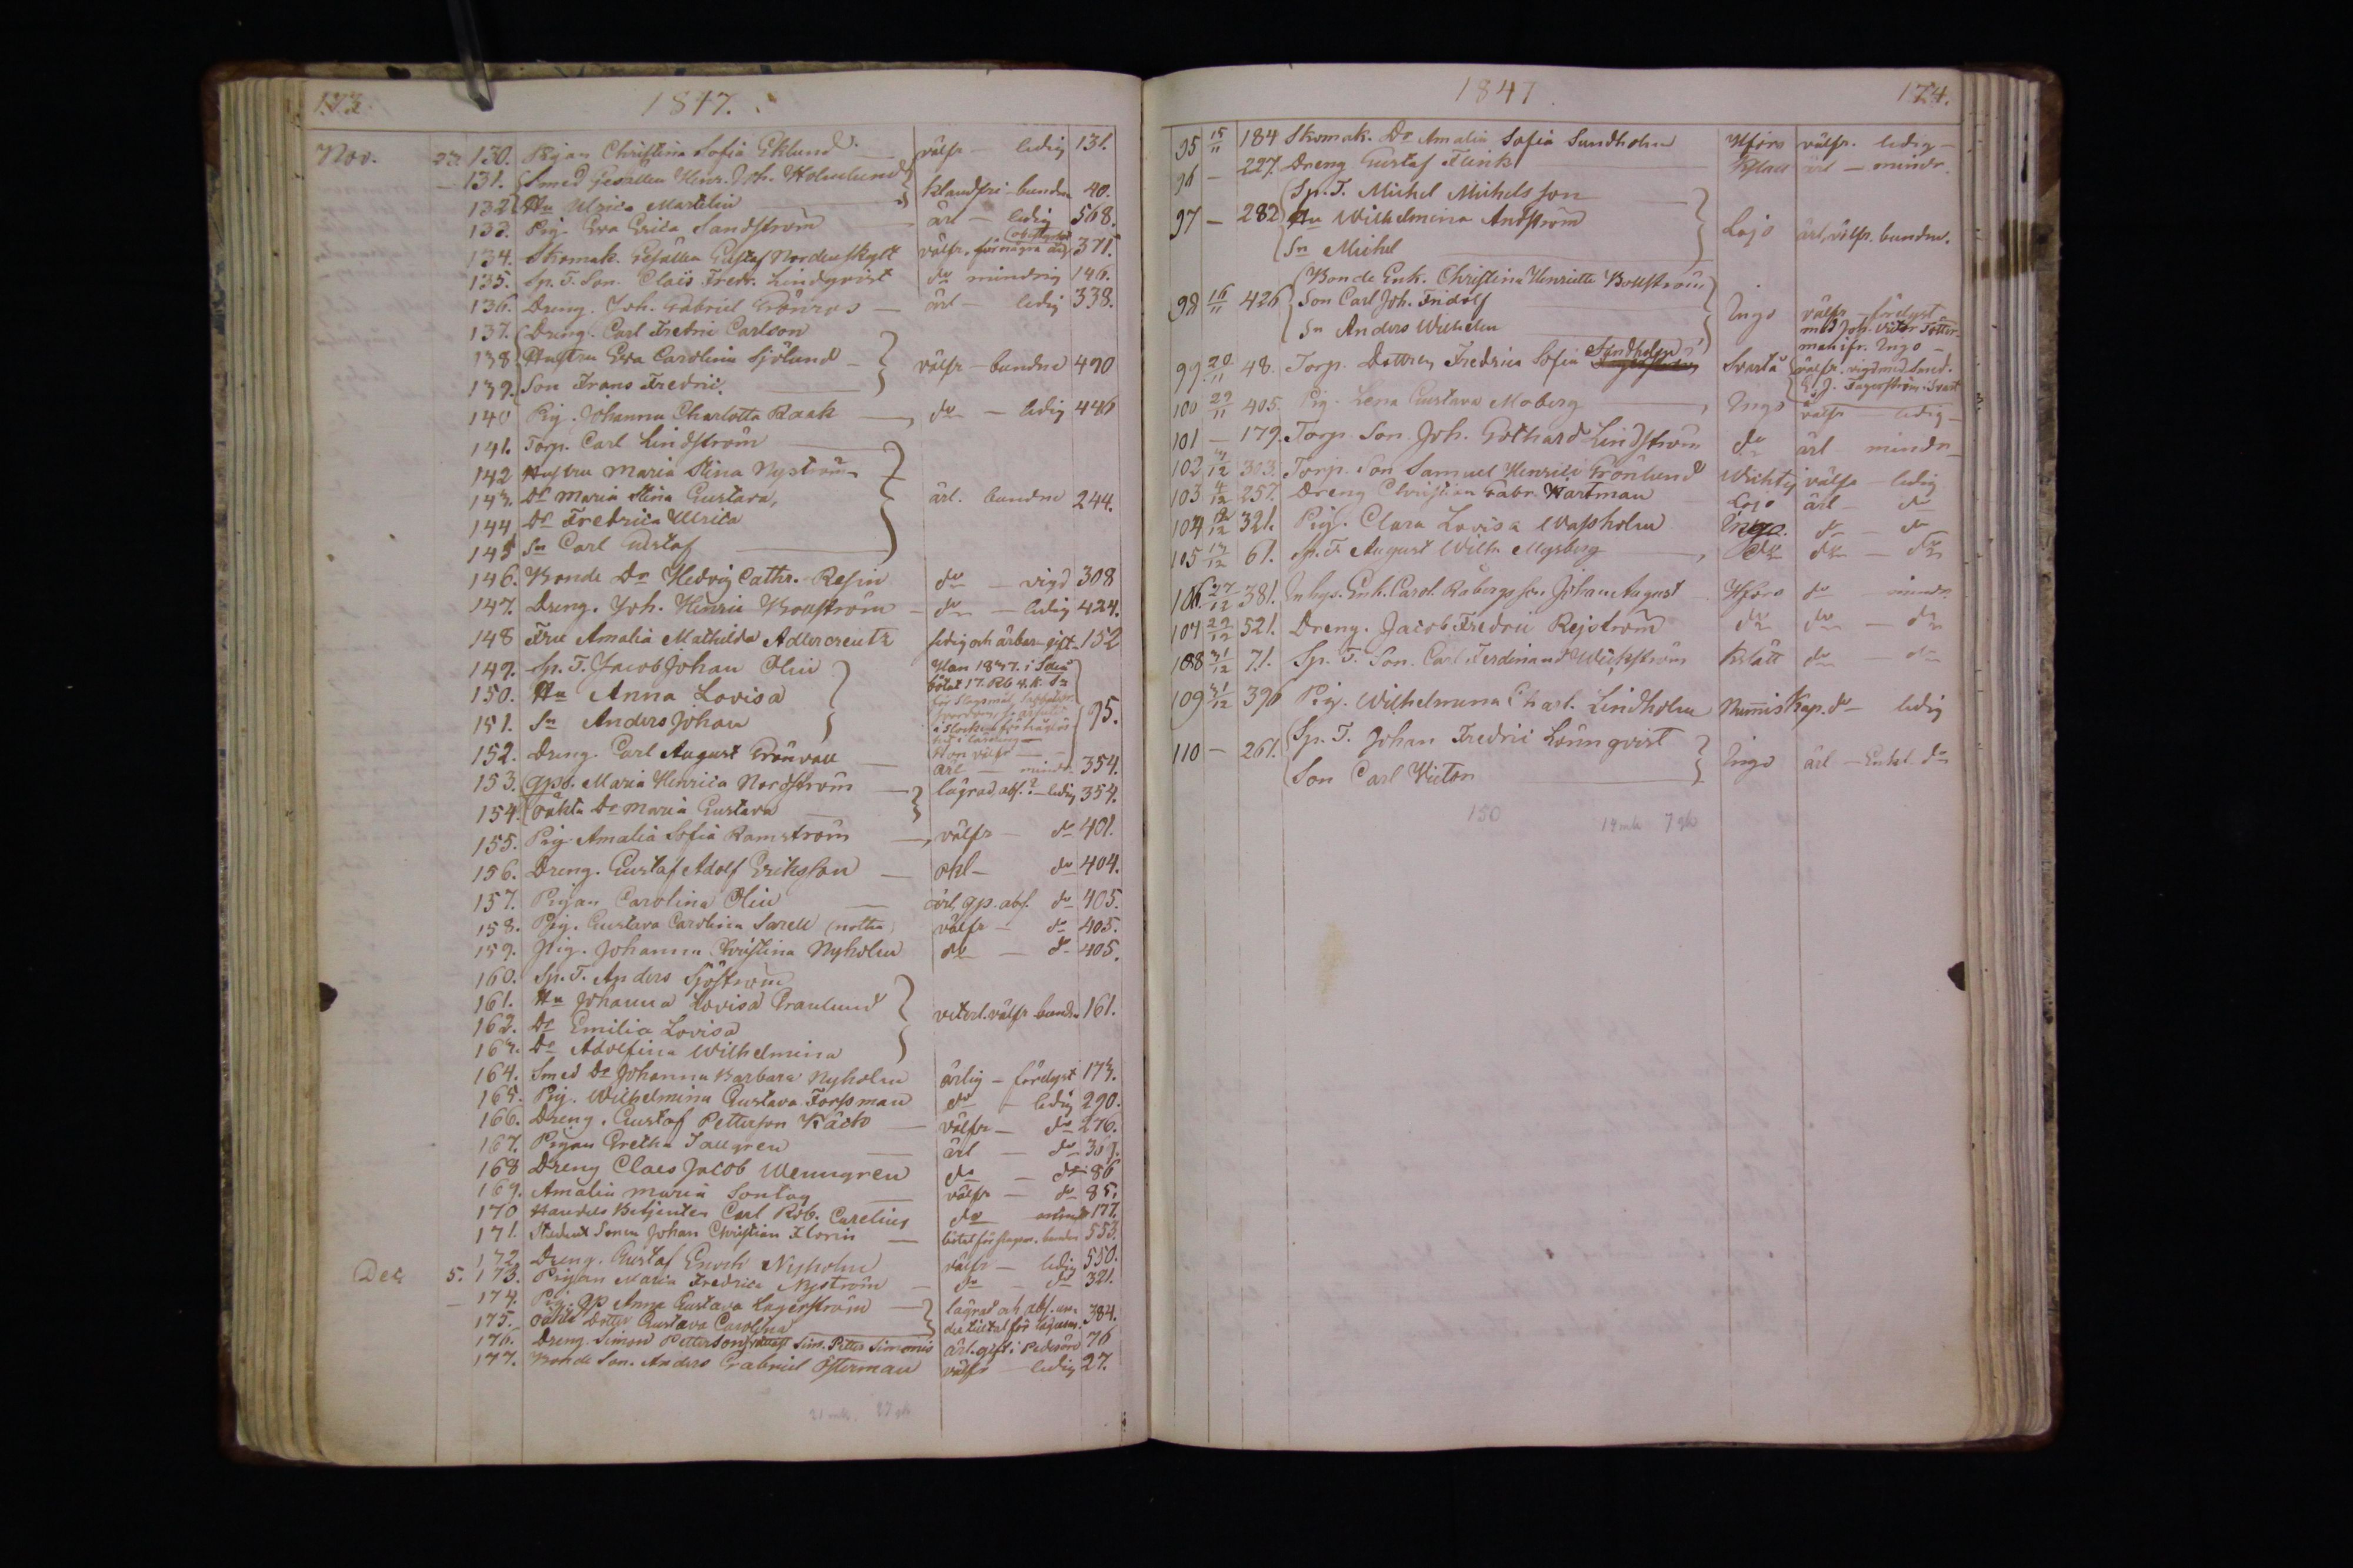 173.
1847.
Nov. 27. 130. Pigan Christina Sofia Eklund välfr — ledig 131.
131. Smed Gesällen Henr. Joh. Holmlund
132. Hu Ulrica Martelin klandfri bunden 40.
133. Pig. Eva Erica Sandström ärl — ledig 568.
134. Skomak. Gesällen Gustaf Nordenskytt välfr. 371.
135. Sp. T. Son Claës Fredr. Lindqvist do mindrig 146.
136. Dreng. Joh. Gabriel Grönros — ärl — ledig 338.
137. Dreng. Carl Fredric Carlson
138. Hustru Eva Carolina Sjölund välfr — bundne 490
139. Son Frans Fredric
140 Pig. Johanna Charlotta Raak do — ledig 446
141. Torp. Carl Lindström
142 Hustru Maria Stina Nyström
143. Dr Maria Stina Gustava, ärl. bundne 244.
144 Dr Fredrica Ulrica
145 Sn Carl Gustaf
146. Bonde Dr Hedvig Cathr. Resin do — vigd 308
147. Dreng. Joh. Henric Boström — do — ledig 424.
148 Fru Amalia Mathilda Adlercreutz ledig och ärbar gift 152
149. Sp. T. Jacob Johan Olin Han 1847. i
150. Hu Anna Lovisa bötat 17. Rb 4. K.
151. Sn Anders Johan 95.
152. Dreng. Carl August Grönvall — ärl — mindr. 354.
153. qps. Maria Henrica Nordström — lägrad, abs. — ledig 354.
154. oäkta Dr Maria Gustava
155. Pig Amalia Sofia Ramström välfr — do 401.
156. Dreng. Gustaf Adolf Eriksson — ärl — do 404.
157. Pigan Carolina Olin — ärl, qp. abs. do 405.
158. Pig. Gustava Carolina Sarell (notha) välfr — do 405.
159. Pig. Johanna Christina Nyholm do — do 405.
160. Sp. T. Anders Sjöström
161. Hu Johanna Lovisa Granlund veterl. välfr bundn 161.
162. Dr Emilia Lovisa
163. Dr Adolfina Wilhelmina
164. Smed Dr Johanna Barbara Nyholm ärlig — förlyst 173.
165. Pig. Wilhelmina Gustava Forssman do — ledig 290.
166. Dreng. Gustaf Petterson Käck — välfr — do 276.
167. Pigan Gretha Tallgren — ärl — do
168 Dreng Claes Jacob Wenngren do — do 86
169. Amalia Maria Sontag — välfr — do 85.
170 Handels Betjenten Carl Rob. Carelius do mindr 177.
171. Student Sonen Johan Christian Florin — 553.
172. Dreng. Gustaf Enoch Nyholm välfr — ledig 550.
Dec 5. 173. Pigan Maria Fredrica Nyström — do — do 321.
174. Pig. qp Anna Gustava Lagerström — lägrad och abs. un-
175. oäkta Dotter Gustava Carolina der tilltal för lägersm. 384.
176. Dreng. Simon Petterson Sim. Petter Simonis ärl. gift i Pedersöre 76
177. Bonde Son. Anders Gabriel Österman välfr — ledig 27.
1847.
174.
95 15/11 184 Skomak. Dr Amalia Sofia Sundholm Hfors välfr. ledig —
96 — 227. Dreng Gustaf Flink Kslätt ärl — mindr.
Sp. T. Michel Michelsson
97 — 282 Hu Wilhelmina Andström Lojo ärl, välfr. bundne.
Sn Michel
Bonde Enk. Christina Henrietta Bollström
98 16/11 426 Son Carl Joh. Fridolf Ingo välfr — förlyst
Sn Anders Wilhelm med Joh. Victor Fetter-
man ifr. Ingo —
99 20/11 48. Torp. Dottren Fredrica Sofia Sundholm Svartå välfr. vigd med Smed.
E. J. Fagerström i Svartå
100 29/11 405. Pig. Lena Gustava Moberg Ingo välfr — ledig —
101 — 179. Torp. Son Joh. Gothard Lindström do ärl — mindr
102 303. Torp. Son Samuel Henrik Grönlund Wichtis välfr — ledig
103 4/12 257. Dreng Christian Gabr. Hartman Lojo ärl — do
104 321. Pig. Clara Lovisa Wassholm Ingo. do — do
105 61. Sp. T. August Wilh. Mysberg do do — do
106. 27/12 381. Inhys. Enk. Carol. Rabergs son Johan August Hfors do — mindr
107 29/12 521. Dreng. Jacob Fredric Rejström do do — do
108 31/12 71. Sp. T. Son. Carl Ferdinand Wickström Kslätt do — do
109 31/12 396 Pig. Wilhelmina Charl. Lindholm Nummis Kap. do — ledig
110 — 261. Sp. T. Johan Fredric Lönnqvist Ingo ärl — Enkl. do
Son Carl Victor
150 14 mk 7 qk
21 mk. 27 qk